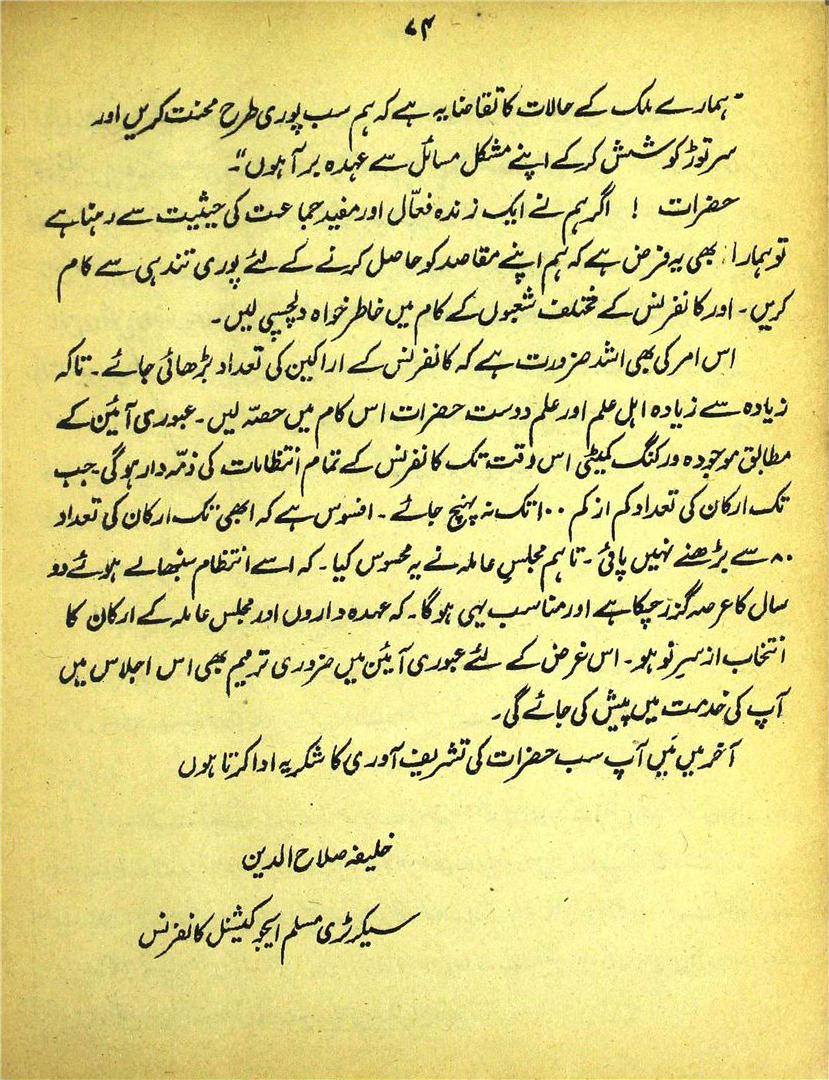 ۷۴
"ہمارے ملک کے حالات کا تقاضا یہ ہے کہ ہم سب پوری طرح محنت کریں اور
سر توڑ کوشش کر کے اپنے مشکل مسائل سے عہدہ برآ ہوں"۔
حضرات ! اگر ہم نے ایک زندہ فعّال اور مفید جماعت کی حیثیت سے رہنا ہے
تو ہمارا بھی یہ فرض ہے کہ ہم اپنے مقاصد کو حاصل کرنے کے لئے پوری تندہی سے کام
کریں۔ اور کانفرنس کے مختلف شعبوں کے کام میں خاطر خواہ دلچسپی لیں۔
اس امر کی بھی اشد ضرورت ہے کہ کانفرنس کے اراکین کی تعداد بڑھائی جائے۔ تاکہ
زیادہ سے زیادہ اہل علم اور علم دوست حضرات اس کام میں حصّہ لیں۔ عبوری آئین کے
مطابق موجودہ ورکنگ کمیٹی اس وقت تک کانفرنس کے تمام انتظامات کی ذمّہ دار ہو گی جب
تک ارکان کی تعداد کم از کم ۱۰۰ تک نہ پہنچ جائے۔ افسوس ہے کہ ابھی تک ارکان کی تعداد
۸۰ سے بڑھنے نہیں پائی۔ تاہم مجلسِ عاملہ نے یہ محسوس کیا۔ کہ اسے انتظام سنبھالے ہوئے دو
سال کا عرصہ گزر چکا ہے اور مناسب یہی ہو گا۔ کہ عہدہ داروں اور مجلس عاملہ کے ارکان کا
انتخاب از سرِ نو ہو۔ اس غرض کے لئے عبوری آئین میں ضروری ترمیم بھی اس اجلاس میں
آپ کی خدمت میں پیش کی جائے گی۔
آخر میں مَیں آپ سب حضرات کی تشریف آوری کا شکریہ ادا کرتا ہوں
خلیفہ صلاح الدین
سیکرٹری مسلم ایجوکیشنل کانفرنس